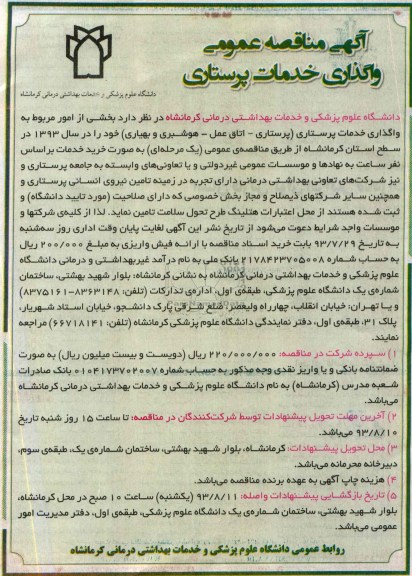 آگهی مناقصه عمومی
واگذاری خدمات پرستاری
دانشگاه علوم پزشکی و خدمات بهداشتی درمانی کرمانشاه
دانشگاه علوم پزشکی و خدمات بهداشتی درمانی کرمانشاه در نظر دارد بخشی از امور مربوط به
واگذاری خدمات پرستاری (پرستاری - اتاق عمل - هوشبری و بهیاری) خود را در سال ۱۳۹۳ در
سطح استان کرمانشاه از طریق مناقصه‌ی عمومی (یک مرحله‌ای) به صورت خرید خدمات براساس
نفر ساعت به نهادها و موسسات عمومی غیردولتی و یا تعاونی‌های وابسته به جامعه پرستاری و
نیز شرکت‌های تعاونی بهداشتی درمانی دارای تجربه در زمینه تامین نیروی انسانی پرستاری و
همچنین سایر شرکتهای ذیصلاح و مجاز بخش خصوصی که دارای صلاحیت (مورد تایید دانشگاه) و
ثبت شده هستند از محل اعتبارات هتلینگ طرح تحول سلامت تامین نماید. لذا از کلیه‌ی شرکتها و
موسسات واجد شرایط دعوت می‌شود از تاریخ نشر این آگهی لغایت پایان وقت اداری روز سه‌شنبه
به تاریخ ۹۳/۷/۲۹ بابت خرید اسناد مناقصه با ارائه فیش واریزی به مبلغ ۲۰۰/۰۰۰ ریال
به حساب شماره ۲۱۷۸۴۲۳۷۰۵۰۰۸ بانک ملی به نام درآمد غیربهداشتی و درمانی دانشگاه
علوم پزشکی و خدمات بهداشتی درمانی کرمانشاه به نشانی کرمانشاه: بلوار شهید بهشتی، ساختمان
شماره‌ی یک دانشگاه علوم پزشکی، طبقه‌ی اول، اداره‌ی تدارکات (تلفن: ۸۳۶۳۱۴۸-۸۳۷۵۱۶۱)
و یا تهران: خیابان انقلاب، چهارراه ولیعصر، ضلع شرقی پارک دانشجو، خیابان استاد شهریار،
پلاک ۳۱، طبقه‌ی اول، دفتر نمایندگی دانشگاه علوم پزشکی کرمانشاه (تلفن: ۶۶۷۱۸۱۴۱) مراجعه
نمایند.
۱) سپرده شرکت در مناقصه: ۲۲۰/۰۰۰/۰۰۰ ریال (دویست و بیست میلیون ریال) به صورت
ضمانتنامه بانکی و یا واریز نقدی وجه مذکور به حساب شماره ۰۱۰۴۱۷۳۷۰۲۰۰۷ بانک صادرات
شعبه مدرس (کرمانشاه) به نام دانشگاه علوم پزشکی و خدمات بهداشتی درمانی کرمانشاه
می‌باشد.
۲) آخرین مهلت تحویل پیشنهادات توسط شرکت‌کنندگان در مناقصه: تا ساعت ۱۵ روز شنبه تاریخ
۹۳/۸/۱۰ می‌باشد.
۳) محل تحویل پیشنهادات: کرمانشاه، بلوار شهید بهشتی، ساختمان شماره‌ی یک، طبقه‌ی سوم،
دبیرخانه محرمانه می‌باشد.
۴) هزینه چاپ آگهی به عهده برنده مناقصه می‌باشد.
۵) تاریخ بازگشایی پیشنهادات واصله: ۹۳/۸/۱۱ (یکشنبه) ساعت ۱۰ صبح در محل کرمانشاه،
بلوار شهید بهشتی، ساختمان شماره‌ی یک دانشگاه علوم پزشکی، طبقه‌ی اول، دفتر مدیریت امور
عمومی می‌باشد.
روابط عمومی دانشگاه علوم پزشکی و خدمات بهداشتی درمانی کرمانشاه